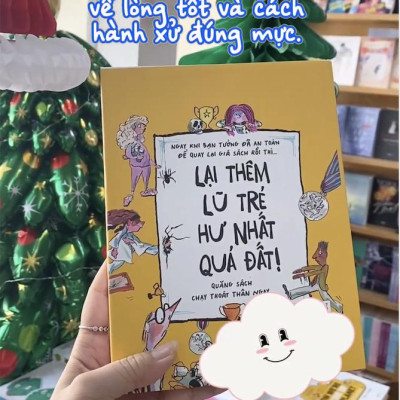 về lòng tốt và cách
hành xử đúng mực.
NGAY KHI BẠN TƯỞNG ĐÃ AN TOÀN
ĐỂ QUAY LẠI GIÁ SÁCH RỒI THÌ...
LẠI THÊM
LŨ TRẺ
HƯ NHẤT
QUẢ ĐẤT!
QUẲNG SÁCH
CHẠY THOÁT THÂN NGAY